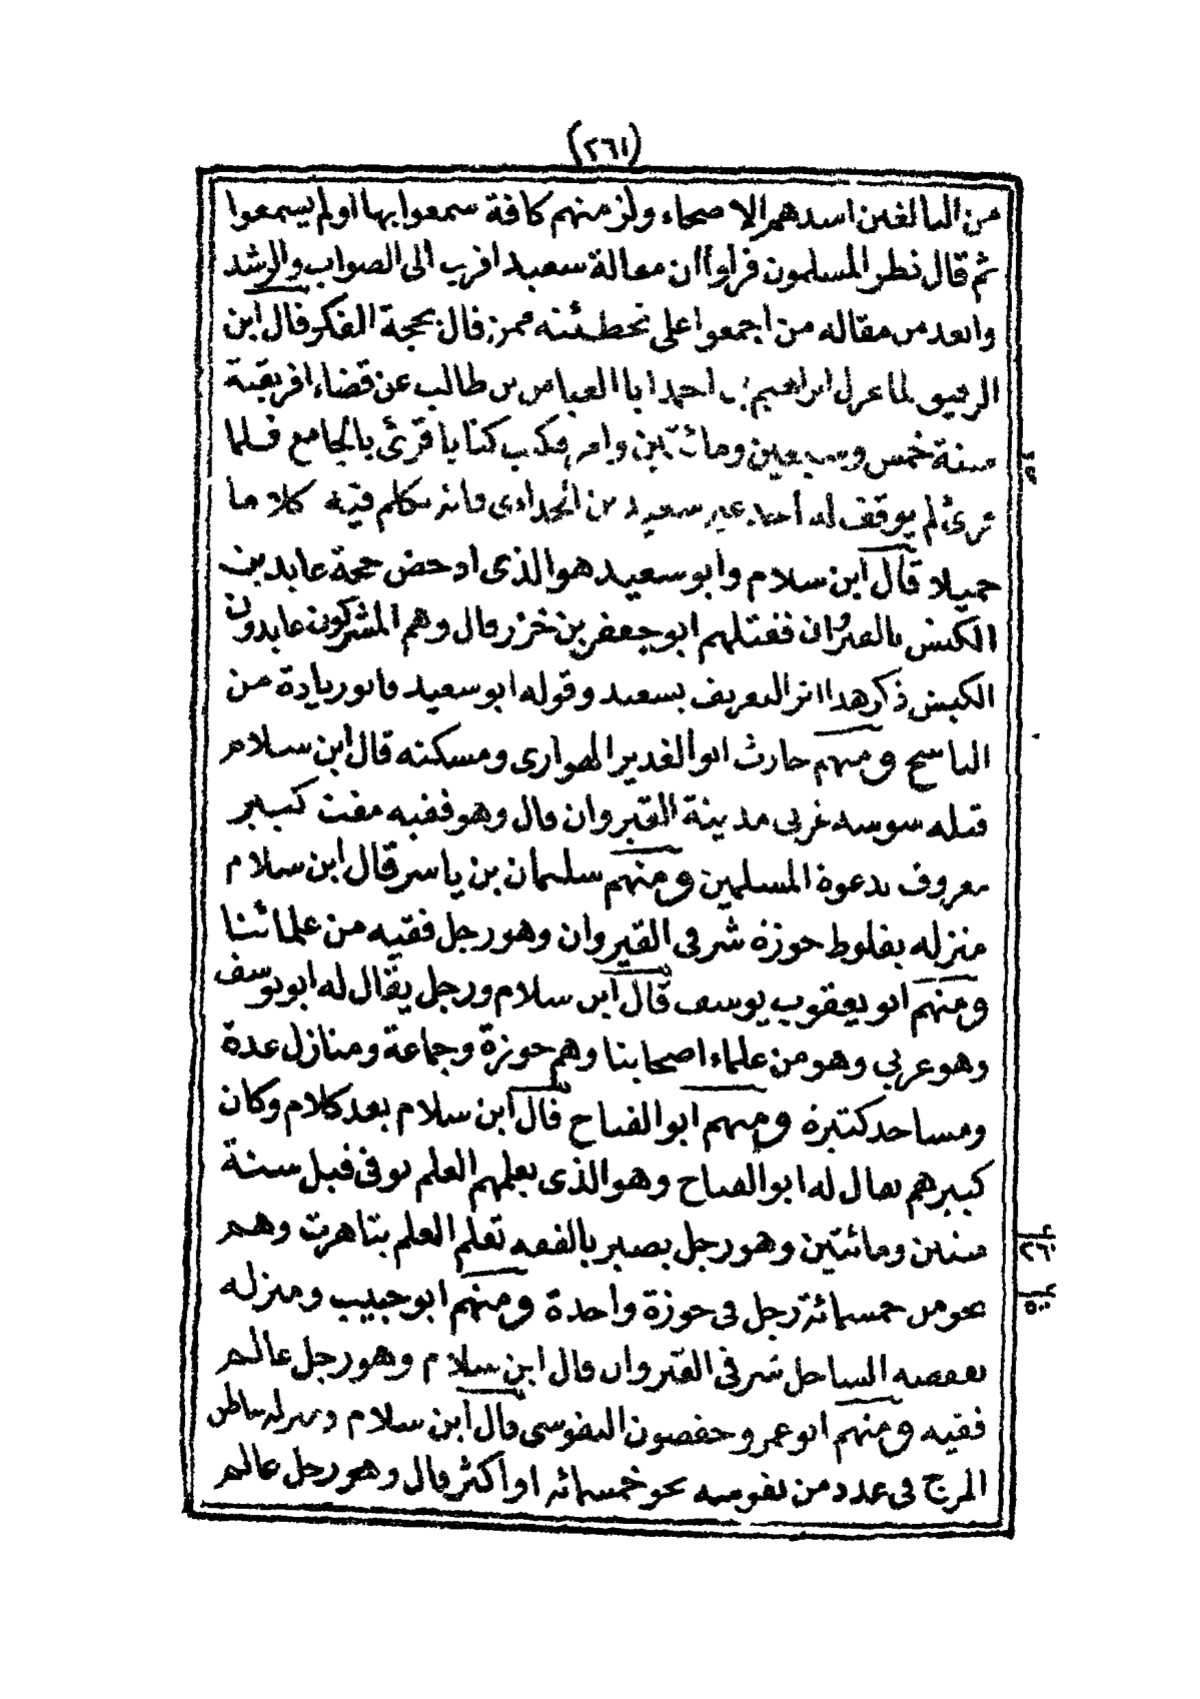 (٢٦١)
من البالغين اسدهم الاصحاء ولزمنهم كافة سمعوا بها اولم يسمعوا
ثم قال نظر المسلمون فرأوا أن مقالة سعيد اقرب الى الصواب والرشد
وابعد من مقاله من اجمعوا على تخطئته ممن قال بحجة الفكر قال ابن
الرقيق لما عزل ابراهيم بن احمد ابا العباس بن طالب عن قضاء افريقية
سنة خمس وسبعين ومائتين وامر فكتب كتابا قرئ بالجامع فلما
قرئ لم يوقف له أحد غير سعيد بن الحدادى فانه تكلم فيه كلاما
جميلا قال ابن سلام وابو سعيد هو الذى ادحض حجة عابد بن
الكبش بالقيروان فقتلهم ابو جعفر بن خزر قال وهم المشركون عابدون
الكبش ذكر هذا اثر التعريف بسعيد وقوله ابو سعيد فابو زيادة من
الناسخ ومنهم حارث ابو الغدير الهوارى ومسكنه قال ابن سلام
قبله سوسه غربى مدينة القيروان قال وهو فقيه مفت كبير
معروف بدعوة المسلمين ومنهم سليمان بن ياسر قال ابن سلام
منزله بقلوط حوزة شرقى القيروان وهو رجل فقيه من علمائنا
ومنهم ابو يعقوب يوسف قال ابن سلام ورجل يقال له ابو يوسف
وهو عربى وهو من علماء اصحابنا وهم حوزة وجماعة ومنازل عدة
ومساجد كثيرة ومنهم ابو الفياح قال ابن سلام بعد كلام وكان
كبيرهم يقال له ابو الفياح وهو الذى يعلمهم العلم توفى قبل سنة
ستين ومائتين وهو رجل بصير بالفقه تعلم العلم بتاهرت وهم
نحو من خمسمائة رجل فى حوزة واحدة ومنهم ابو حبيب ومنزله
بقفصه الساحل شرقى القيروان قال ابن سلام وهو رجل عالم
فقيه ومنهم ابو عمرو حفصون النفوسى قال ابن سلام ومنزله ساطن
المرج فى عدد من نفوسه نحو خمسمائه او أكثر قال وهو رجل عالم